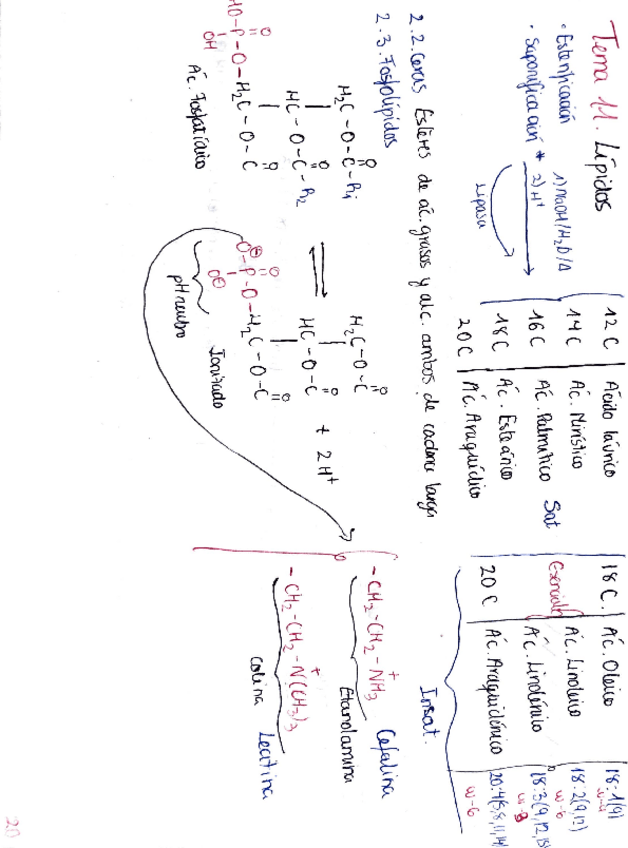 Tema 11. Lípidos
• Esterificación
• Saponificación *
1) NaOH/H2O/Δ
2) H+
lipasa
12C Ácido láurico
14C Ác. Mirístico
16C Ác. Palmítico Sat
18C Ác. Esteárico
20C Ác. Araquídico
18C. Ác. Oleico 18:1(9)
Esenciales Ác. Linoleico 18:2(9,12) w-6
Ác. Linolénico 18:3(9,12,15) w-3
20C Ác. Araquidónico 20:4(5,8,11,14) w-6
Insat.
2.2. Ceras Ésteres de ác. grasos y alc. ambos de cadena larga
2.3. Fosfolípidos
H2C-O-C-R1
O
HC-O-C-R2
O
HO-P-O-H2C-O-C
O
OH
Ác. Fosfatídico
H2C-O-C
O
HC-O-C
O-P-O-H2C-O-C
O
pH neutro
Ionizado
+ 2H+
-CH2-CH2-NH3+ Cefalina
Etanolamina
-CH2-CH2-N(CH3)3+
Colina Lecitina
20